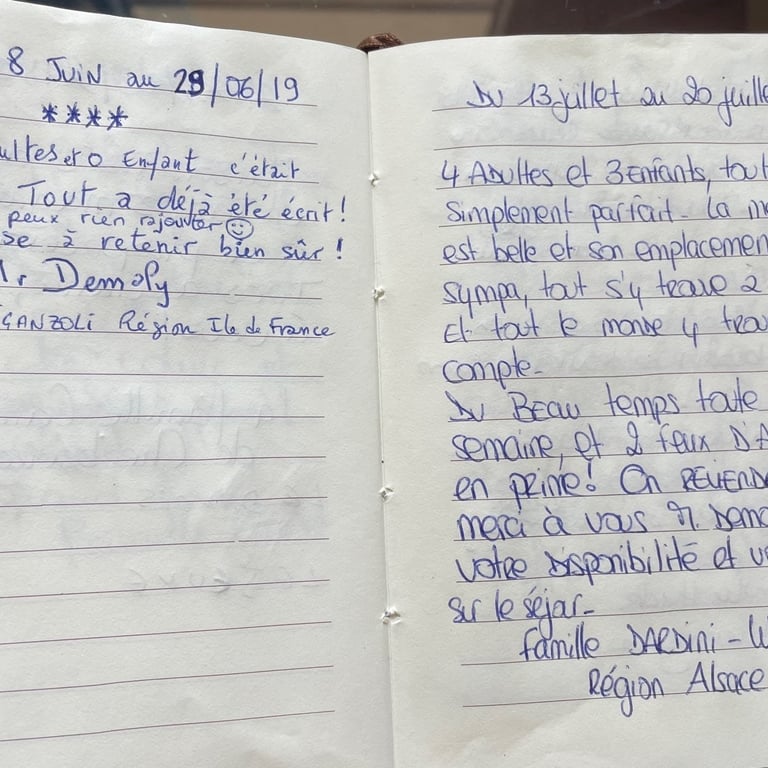 8 JUIN au 29/06/19
****
ultes et 0 Enfant c'était
Tout a déjà été écrit!
peux rien rajouter
se à retenir bien sûr!
Mr Demoly
GANZOLI Région Ile de France
Du 13 juillet au 20 juille
4 Adultes et 3 Enfants, tout
Simplement parfait. La m
est belle et son emplacemen
sympa, tout s'y trouve à
Et tout le monde y trou
compte.
Du BEAU temps toute
semaine, et 2 feux D'A
en prime! On REVIEND
merci à vous M. Demo
votre Disponibilité et v
sur le séjour-
famille DARDiNi - W
Région Alsace